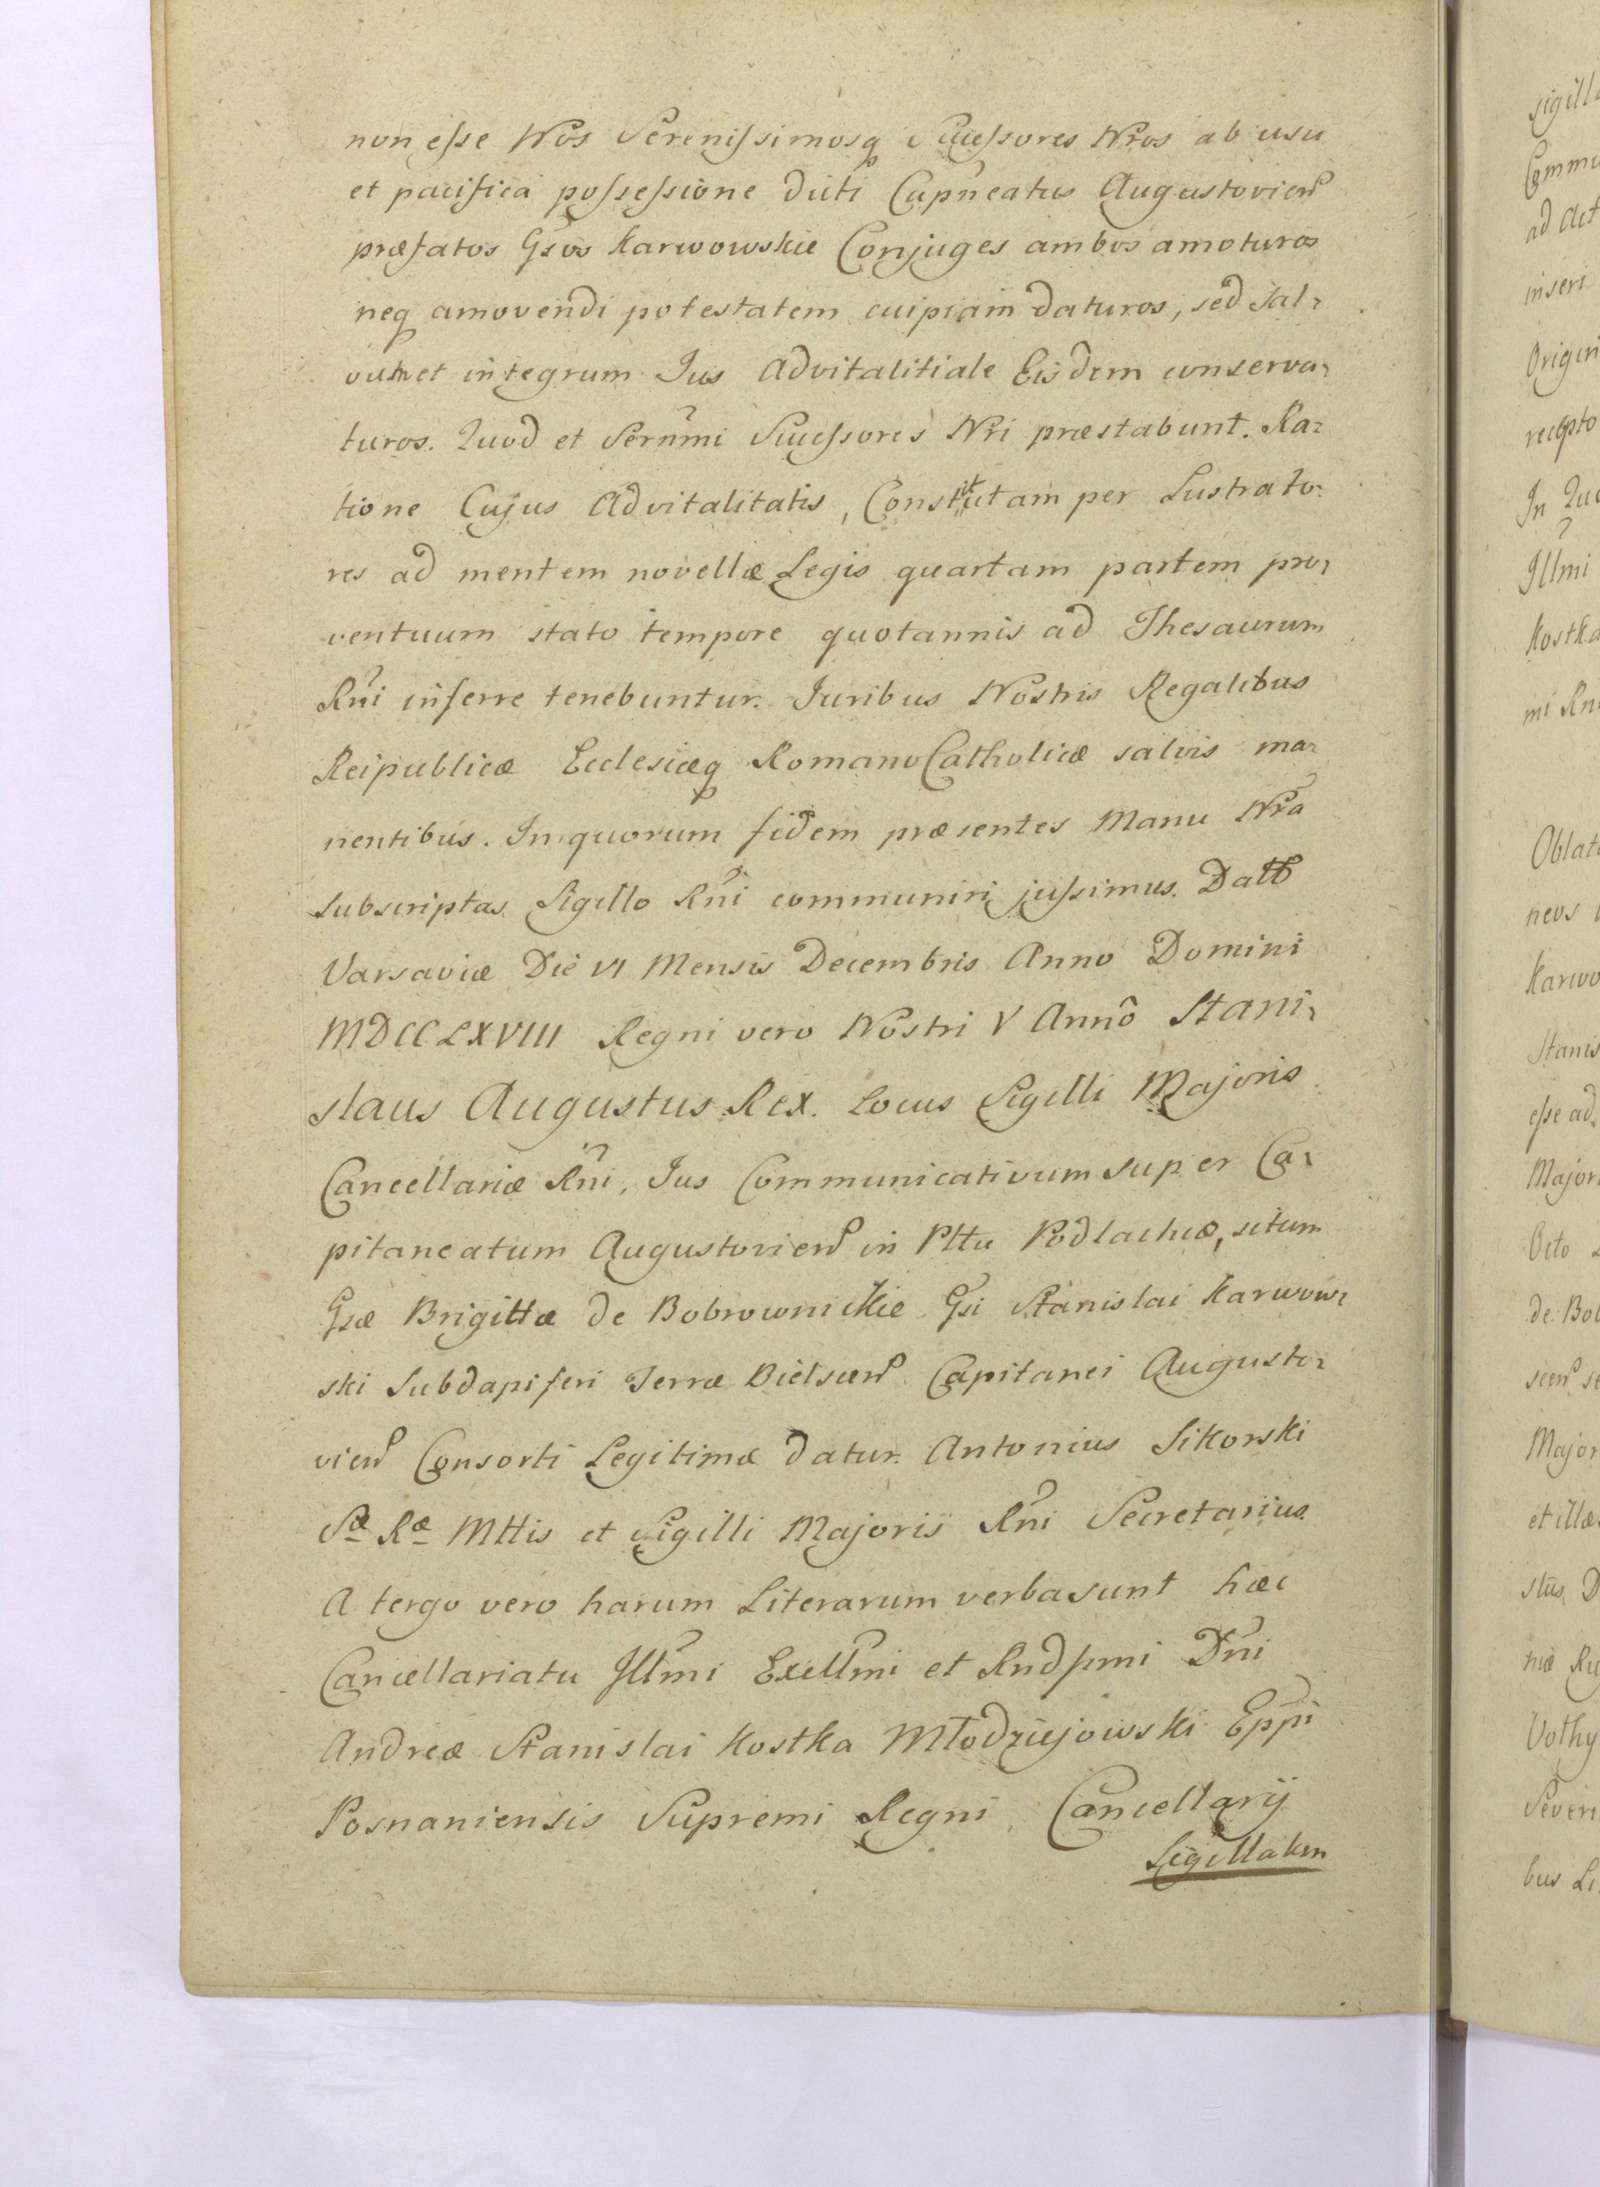 non esse Nos Serenissimosq Successores Nros ab usu
et pacifica possessione dicti Capneatus Augustovien
præfatos Gsos Karwowskie Conjuges ambos amoturos
neq amovendi potestatem cuipiam daturos, sed Sal-
vum et integrum Jus Advitalitiale Eisdem conserva-
turos. Quod et Sernmi Successores Nri præstabunt. Ra-
tione Cujus Advitalitatis, Constitutam per Lustrato-
res ad mentem novellæ Legis quartam partem pro-
ventuum stato tempore quotannis ad Thesaurum
Rni inferre tenebuntur. Juribus Nostris Regalibus
Reipublicæ Ecclesiæq Romano Catholicæ salvis ma-
nentibus. In quorum fidem præsentes Manu Nra
subscriptas Sigillo Rni communiri jussimus. Datt
Varsaviæ Die VI Mensis Decembris Anno Domini
MDCCLXVIII Regni vero Nostri V Anno Stani-
slaus Augustus Rex. Locus Sigilli Majoris
Cancellariæ Rni, Jus Communicativum super Ca-
pitaneatum Augustovien in Pttu Podlachiæ, situm
Gsæ Brigittæ de Bobrownickie Gsi Stanislai Karwow-
ski Subdapiferi Terræ Bielscen Capitanei Augusto-
vien Consorti Legitimæ datur. Antonius Sikorski
Sæ Ræ Mttis et Sigilli Majoris Rni Secretarius.
A tergo vero harum Literarum verba sunt hæc
Cancellariatu Illmi Excllmi et Rndssmi Dni
Andreæ Stanislai Kostka Młodziejowski Eppi
Posnaniensis Supremi Regni Cancellarij
Sigillatum
sigill
Commu
ad Act
inseri
Origin
recepto
In Qu
Illmi
Kostka
mi Rn
Oblat
neos
Karwo
Stanis
esse ad
Major
Octo
de Bo
scen s
Major
et illæ
stus, D
niæ Ru
Volhy
Severi
bus Li